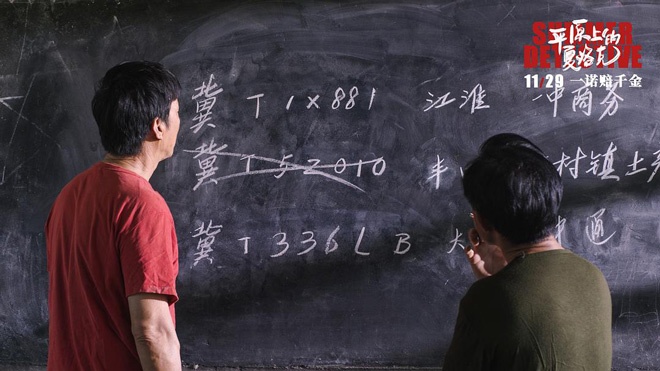 SUMMER
DETECTIVE
平原上的
夏洛克
11/29 一诺赔千金
冀 T 1X881 江淮 商务
冀 T52010 丰 村镇土
冀 T336LB 大 通